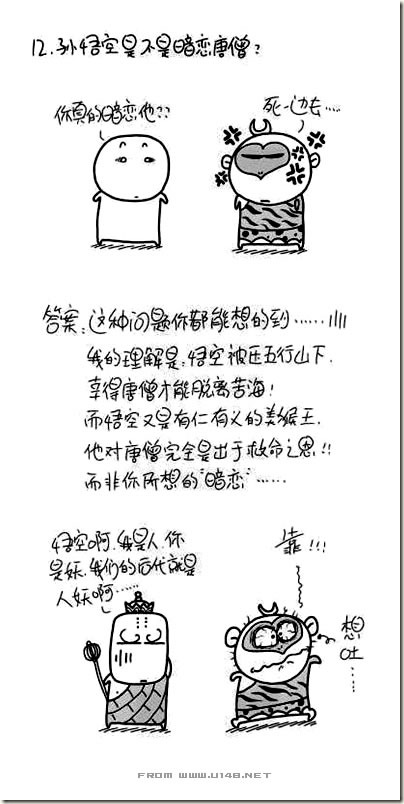 12.孙悟空是不是暗恋唐僧?
你真的暗恋他??
死一边去……
答案:这种问题你都能想的到……
我的理解是:悟空被压五行山下.
幸得唐僧才能脱离苦海!
而悟空又是有仁有义的美猴王.
他对唐僧完全是出于救命之恩!!
而非你所想的"暗恋"……
悟空啊.我是人.你
是妖.我们的后代就是
人妖啊……
靠!!!
想
吐
……
FROM WWW.U148.NET